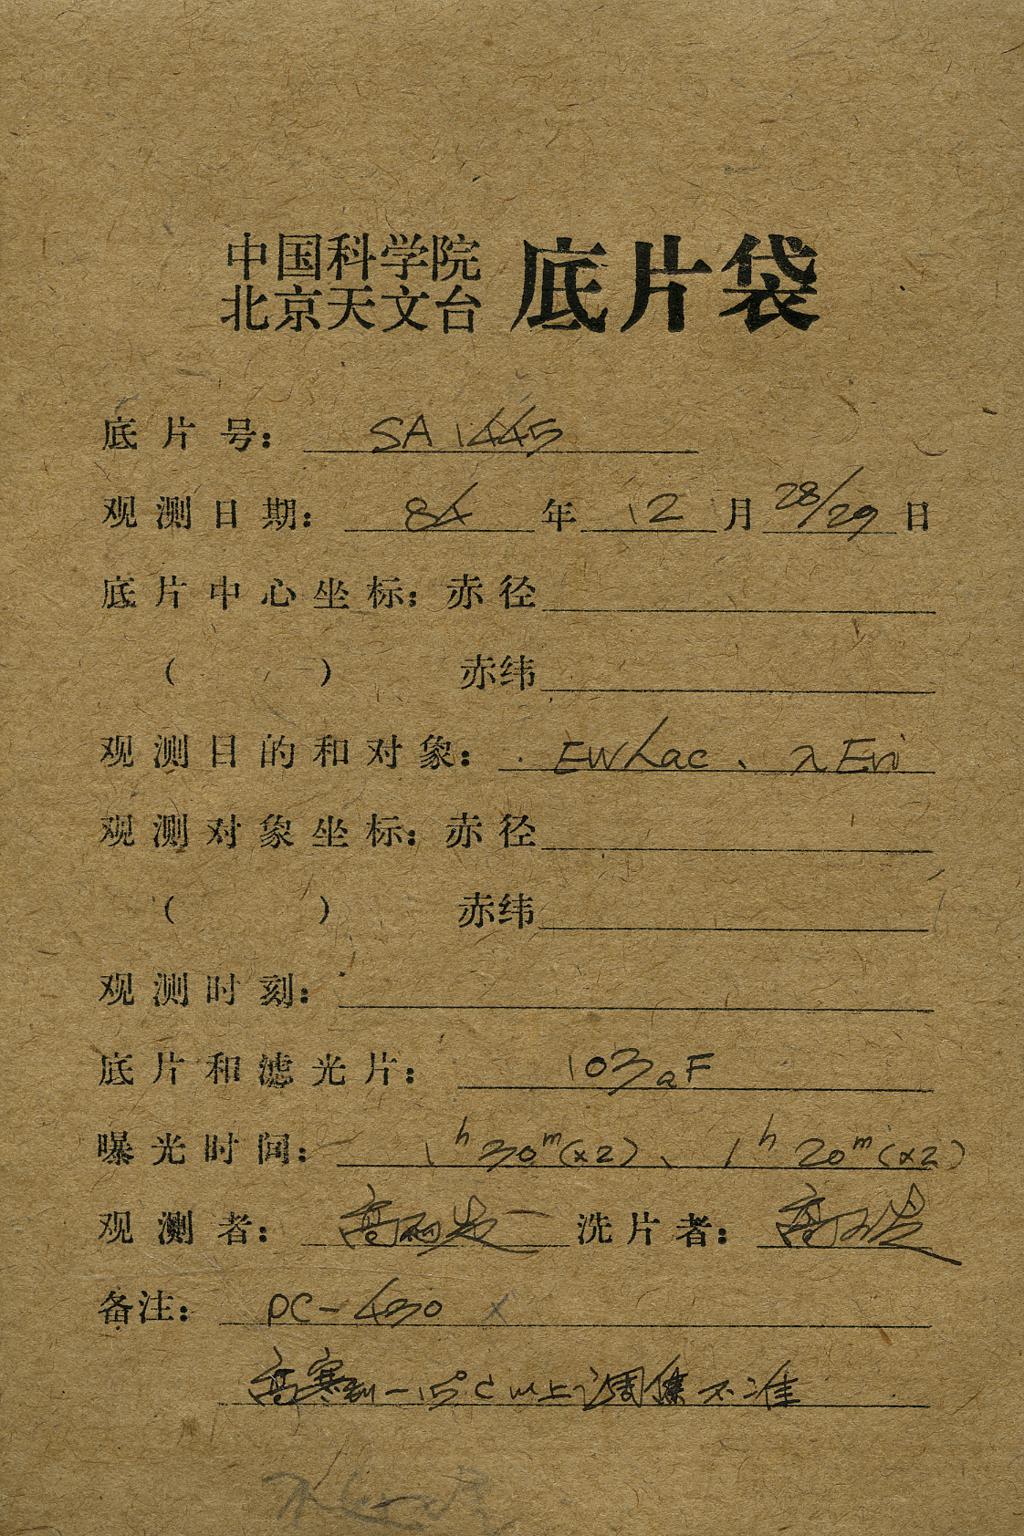 中国科学院
北京天文台 底片袋
底片号: SA 1445
观测日期: 84 年 12 月 28/29 日
底片中心坐标: 赤径
( ) 赤纬
观测目的和对象: EW Lac、λ Eri
观测对象坐标: 赤径
( ) 赤纬
观测时刻:
底片和滤光片: 103aF
曝光时间: 1h30m(x2)、1h20m(x2)
观测者: 洗片者:
备注: PC-430 x
高寒到-15°C以上调焦不准